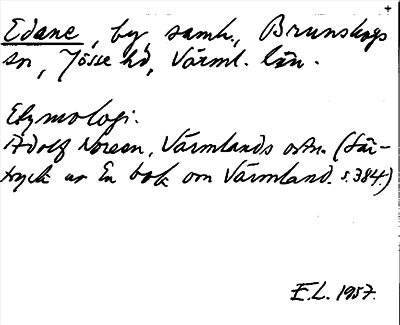 Edane, by samh., Brunskogs
sn, Jösse hd, Värml. län.
Etymologi.
Adolf Noreen, Värmlands ortn. (Sär-
tryck ur En bok om Värmland. s. 384.)
E.L. 1957.